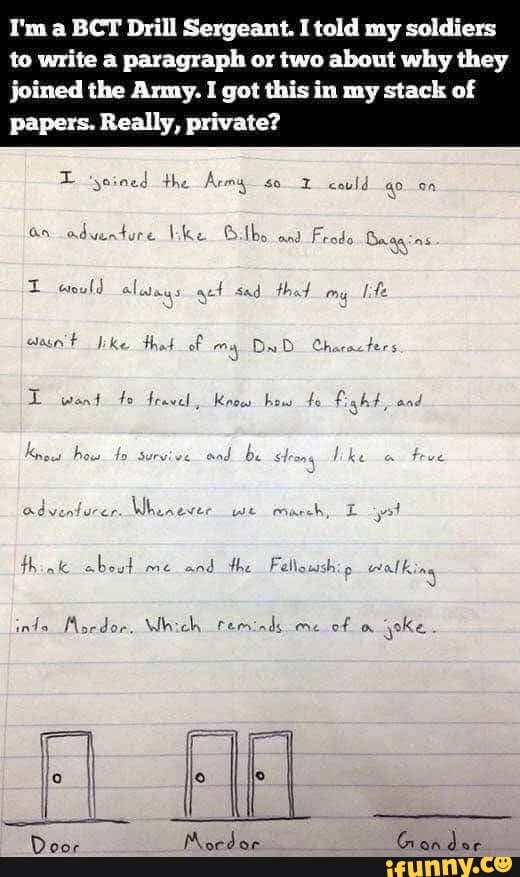 I'm a BCT Drill Sergeant. I told my soldiers
to write a paragraph or two about why they
joined the Army. I got this in my stack of
papers. Really, private?
I joined the Army so I could go on
an adventure like Bilbo and Frodo Baggins.
I would always get sad that my life
wasn't like that of my DND Characters.
I want to travel, know how to fight, and
know how to survive and be strong like a true
adventurer. Whenever we march, I just
think about me and the Fellowship walking
into Mordor. Which reminds me of a joke.
Door Mordor Gondor
ifunny.co